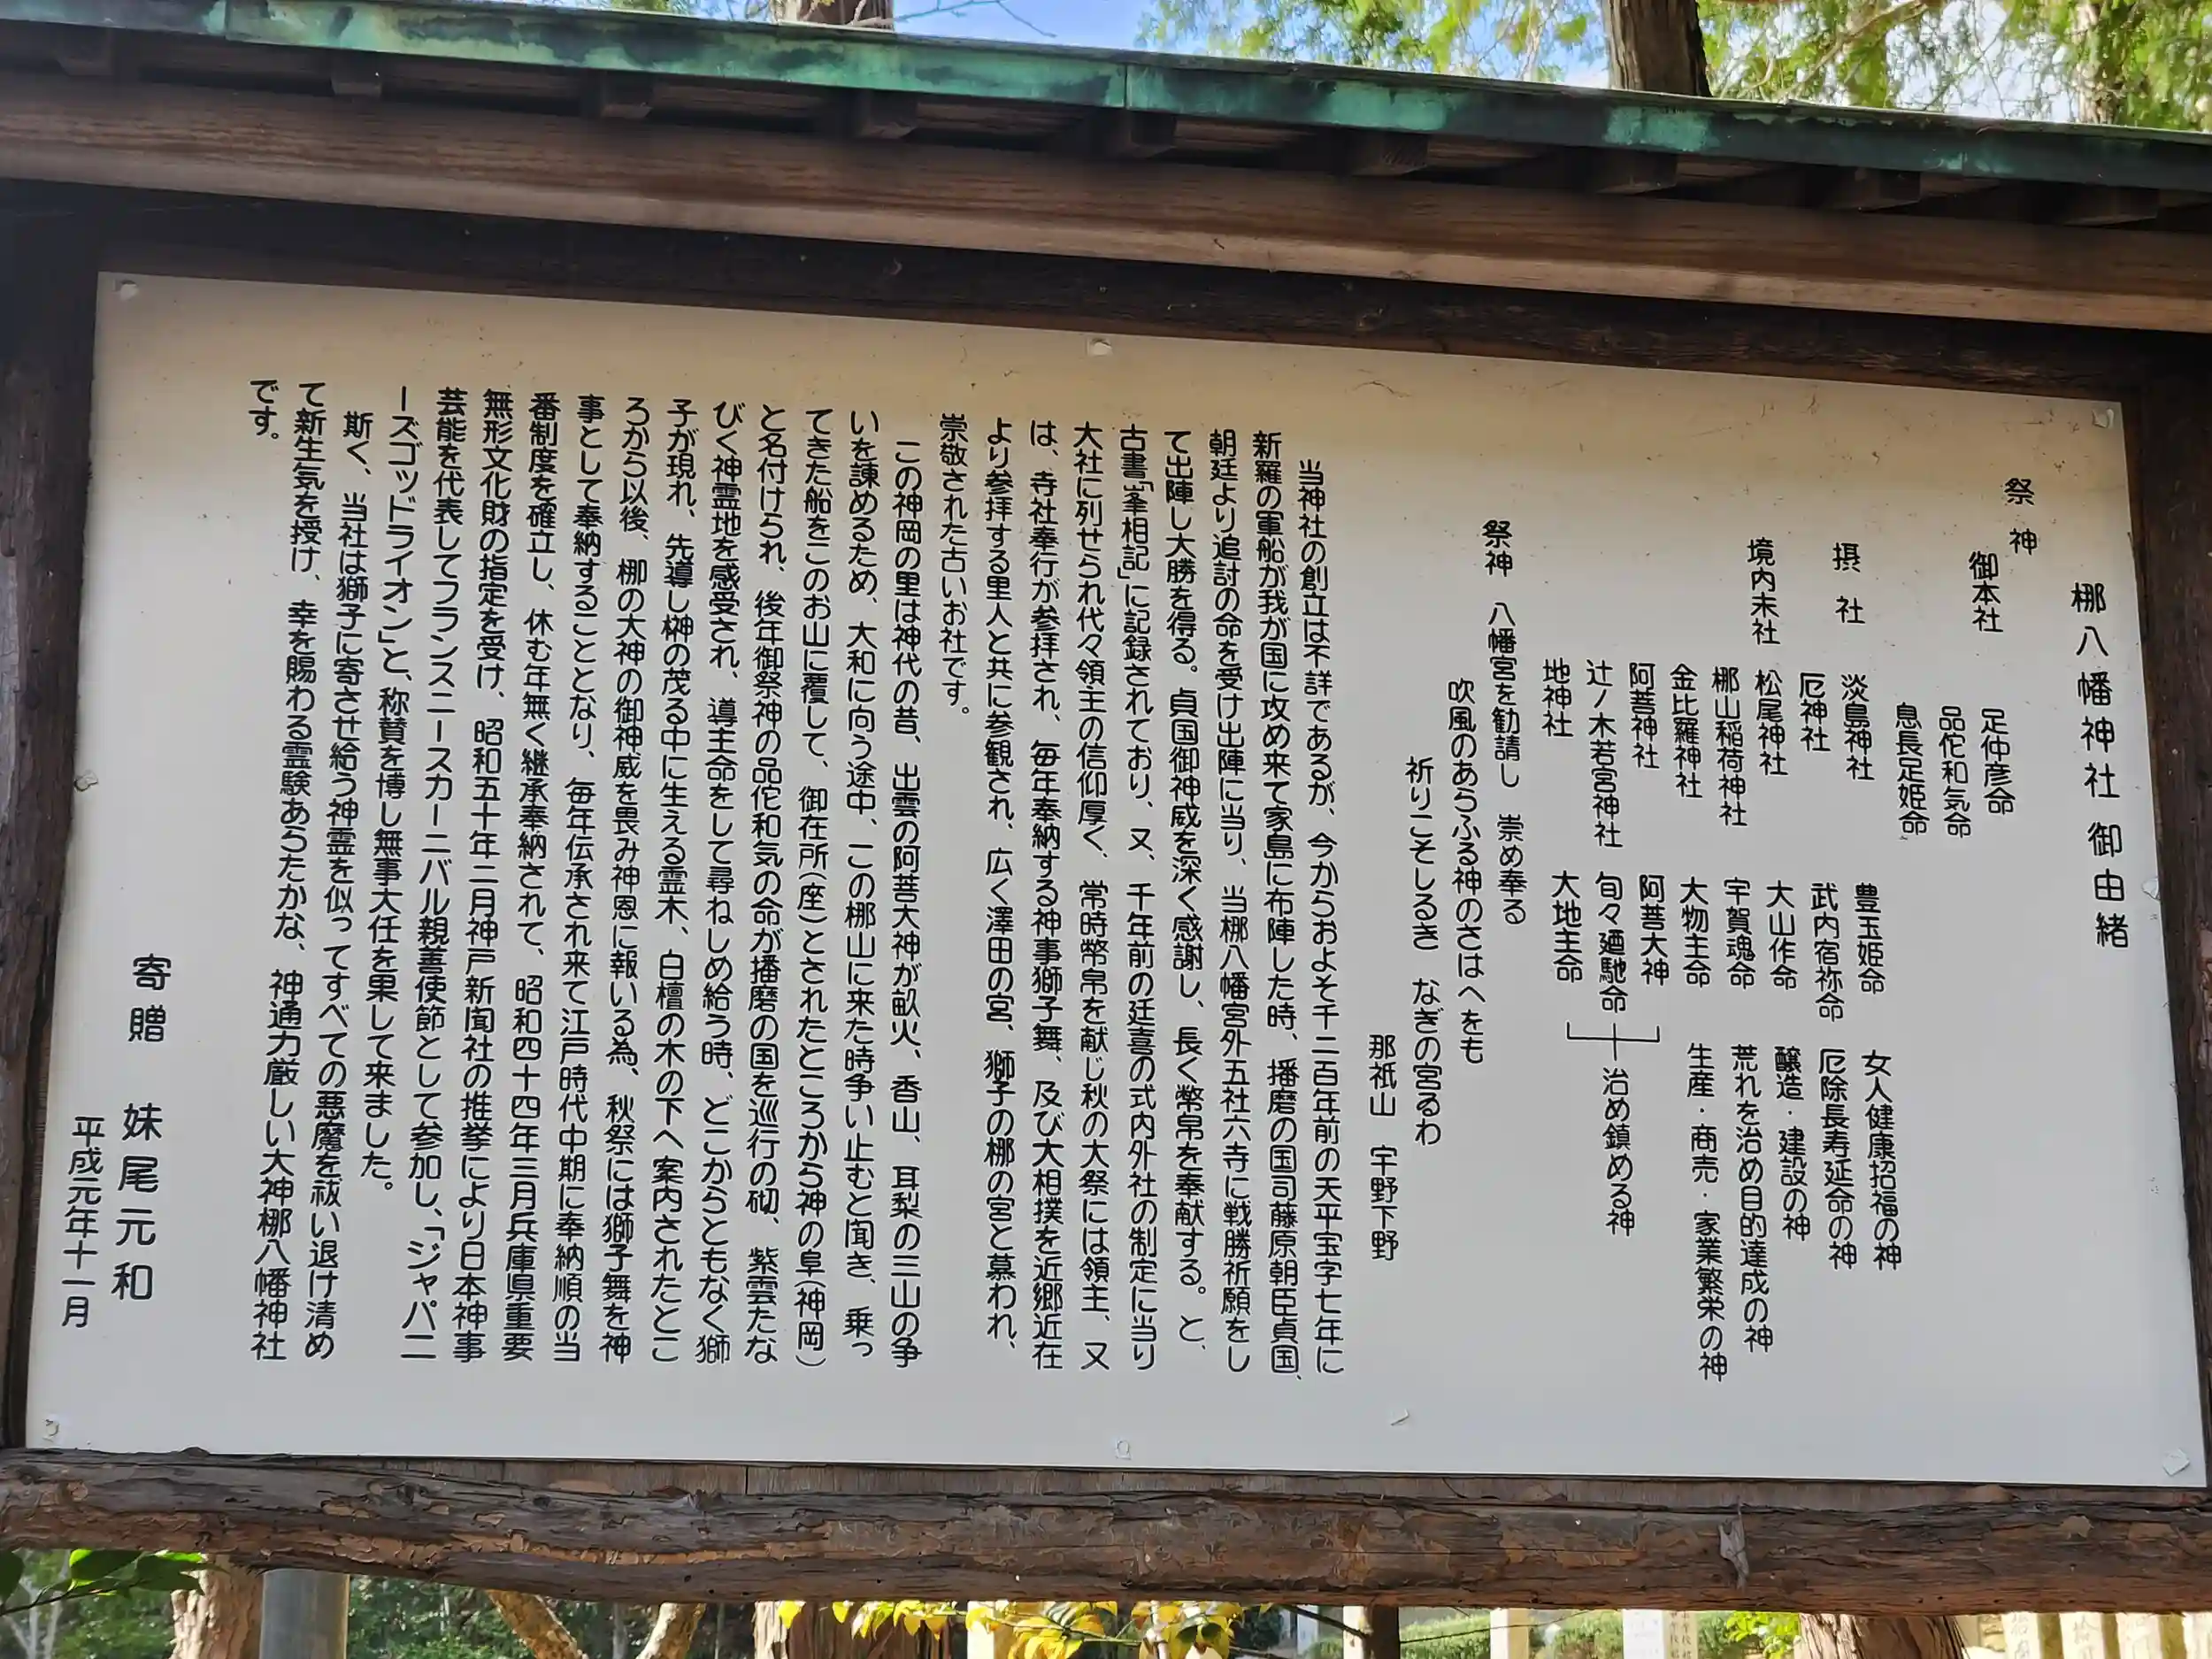 梛八幡神社御由緒
祭神
御本社
足仲彦命
品佗和気命
息長足姫命
摂社
淡島神社 豊玉姫命 女人健康招福の神
厄神社 武内宿祢命 厄除長寿延命の神
境内末社
松尾神社 大山作命 醸造・建設の神
梛山稲荷神社 宇賀魂命 荒れを治め目的達成の神
金比羅神社 大物主命 生産・商売・家業繁栄の神
阿菩神社 阿菩大神
辻ノ木若宮神社 旬々廼馳命 治め鎮める神
地神社 大地主命
祭神 八幡宮を勧請し 崇め奉る
吹風のあらふる神のさはへをも
祈りこそしるき なぎの宮るわ
那祇山 宇野下野
当神社の創立は不詳であるが、今からおよそ千二百年前の天平宝字七年に
新羅の軍船が我が国に攻め来て家島に布陣した時、播磨の国司藤原朝臣貞国、
朝廷より追討の命を受け出陣に当り、当梛八幡宮外五社六寺に戦勝祈願をし
て出陣し大勝を得る。貞国御神威を深く感謝し、長く幣帛を奉献する。と、
古書「峯相記」に記録されており、又、千年前の延喜の式内外社の制定に当り
大社に列せられ代々領主の信仰厚く、常時幣帛を献じ秋の大祭には領主、又
は、寺社奉行が参拝され、毎年奉納する神事獅子舞、及び大相撲を近郷近在
より参拝する里人と共に参観され、広く澤田の宮、獅子の梛の宮と慕われ、
崇敬された古いお社です。
この神岡の里は神代の昔、出雲の阿菩大神が畝火、香山、耳梨の三山の争
いを諌めるため、大和に向う途中、この梛山に来た時争い止むと聞き、乗っ
てきた船をこのお山に覆して、御在所(座)とされたところから神の阜(神岡)
と名付けられ、後年御祭神の品佗和気の命が播磨の国を巡行の砌、紫雲たな
びく神霊地を感受され、導主命をして尋ねしめ給う時、どこからともなく獅
子が現れ、先導し榊の茂る中に生える霊木、白檀の木の下へ案内されたとこ
ろから以後、梛の大神の御神威を畏み神恩に報いる為、秋祭には獅子舞を神
事として奉納することとなり、毎年伝承され来て江戸時代中期に奉納順の当
番制度を確立し、休む年無く継承奉納されて、昭和四十四年三月兵庫県重要
無形文化財の指定を受け、昭和五十年二月神戸新聞社の推挙により日本神事
芸能を代表してフランスニースカーニバル親善使節として参加し、「ジャパニ
ーズゴッドライオン」と、称賛を博し無事大任を果して来ました。
斯く、当社は獅子に寄させ給う神霊を似ってすべての悪魔を祓い退け清め
て新生気を授け、幸を賜わる霊験あらたかな、神通力厳しい大神梛八幡神社
です。
寄贈 妹尾元和
平成元年十一月